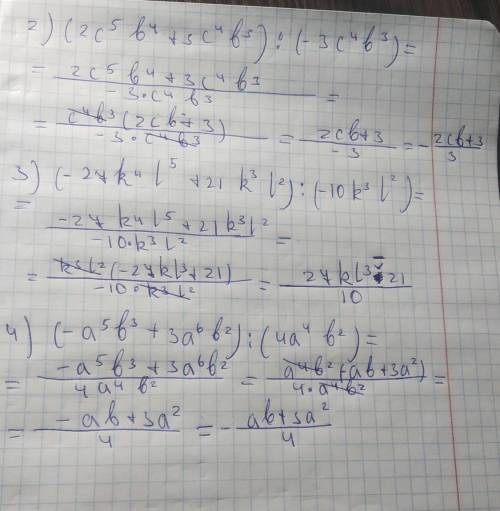 2) (2c⁵b⁴+3c⁴b³):(-3c⁴b³)=
= (2c⁵b⁴+3c⁴b³)/(-3·c⁴b³) =
= (c⁴b³(2cb+3))/(-3·c⁴b³) = (2cb+3)/(-3) = -(2cb+3)/3
3) (-27k⁴l⁵+21k³l²):(-10k³l²)=
= (-27k⁴l⁵+21k³l²)/(-10·k³l²) =
= (k³l²(-27kl³+21))/(-10·k³l²) = (27kl³-21)/10
4) (-a⁵b³+3a⁶b²):(4a⁴b²)=
= (-a⁵b³+3a⁶b²)/(4a⁴b²) = (a⁴b²(-ab+3a²))/(4·a⁴b²) =
= (-ab+3a²)/4 = -(ab+3a²)/4